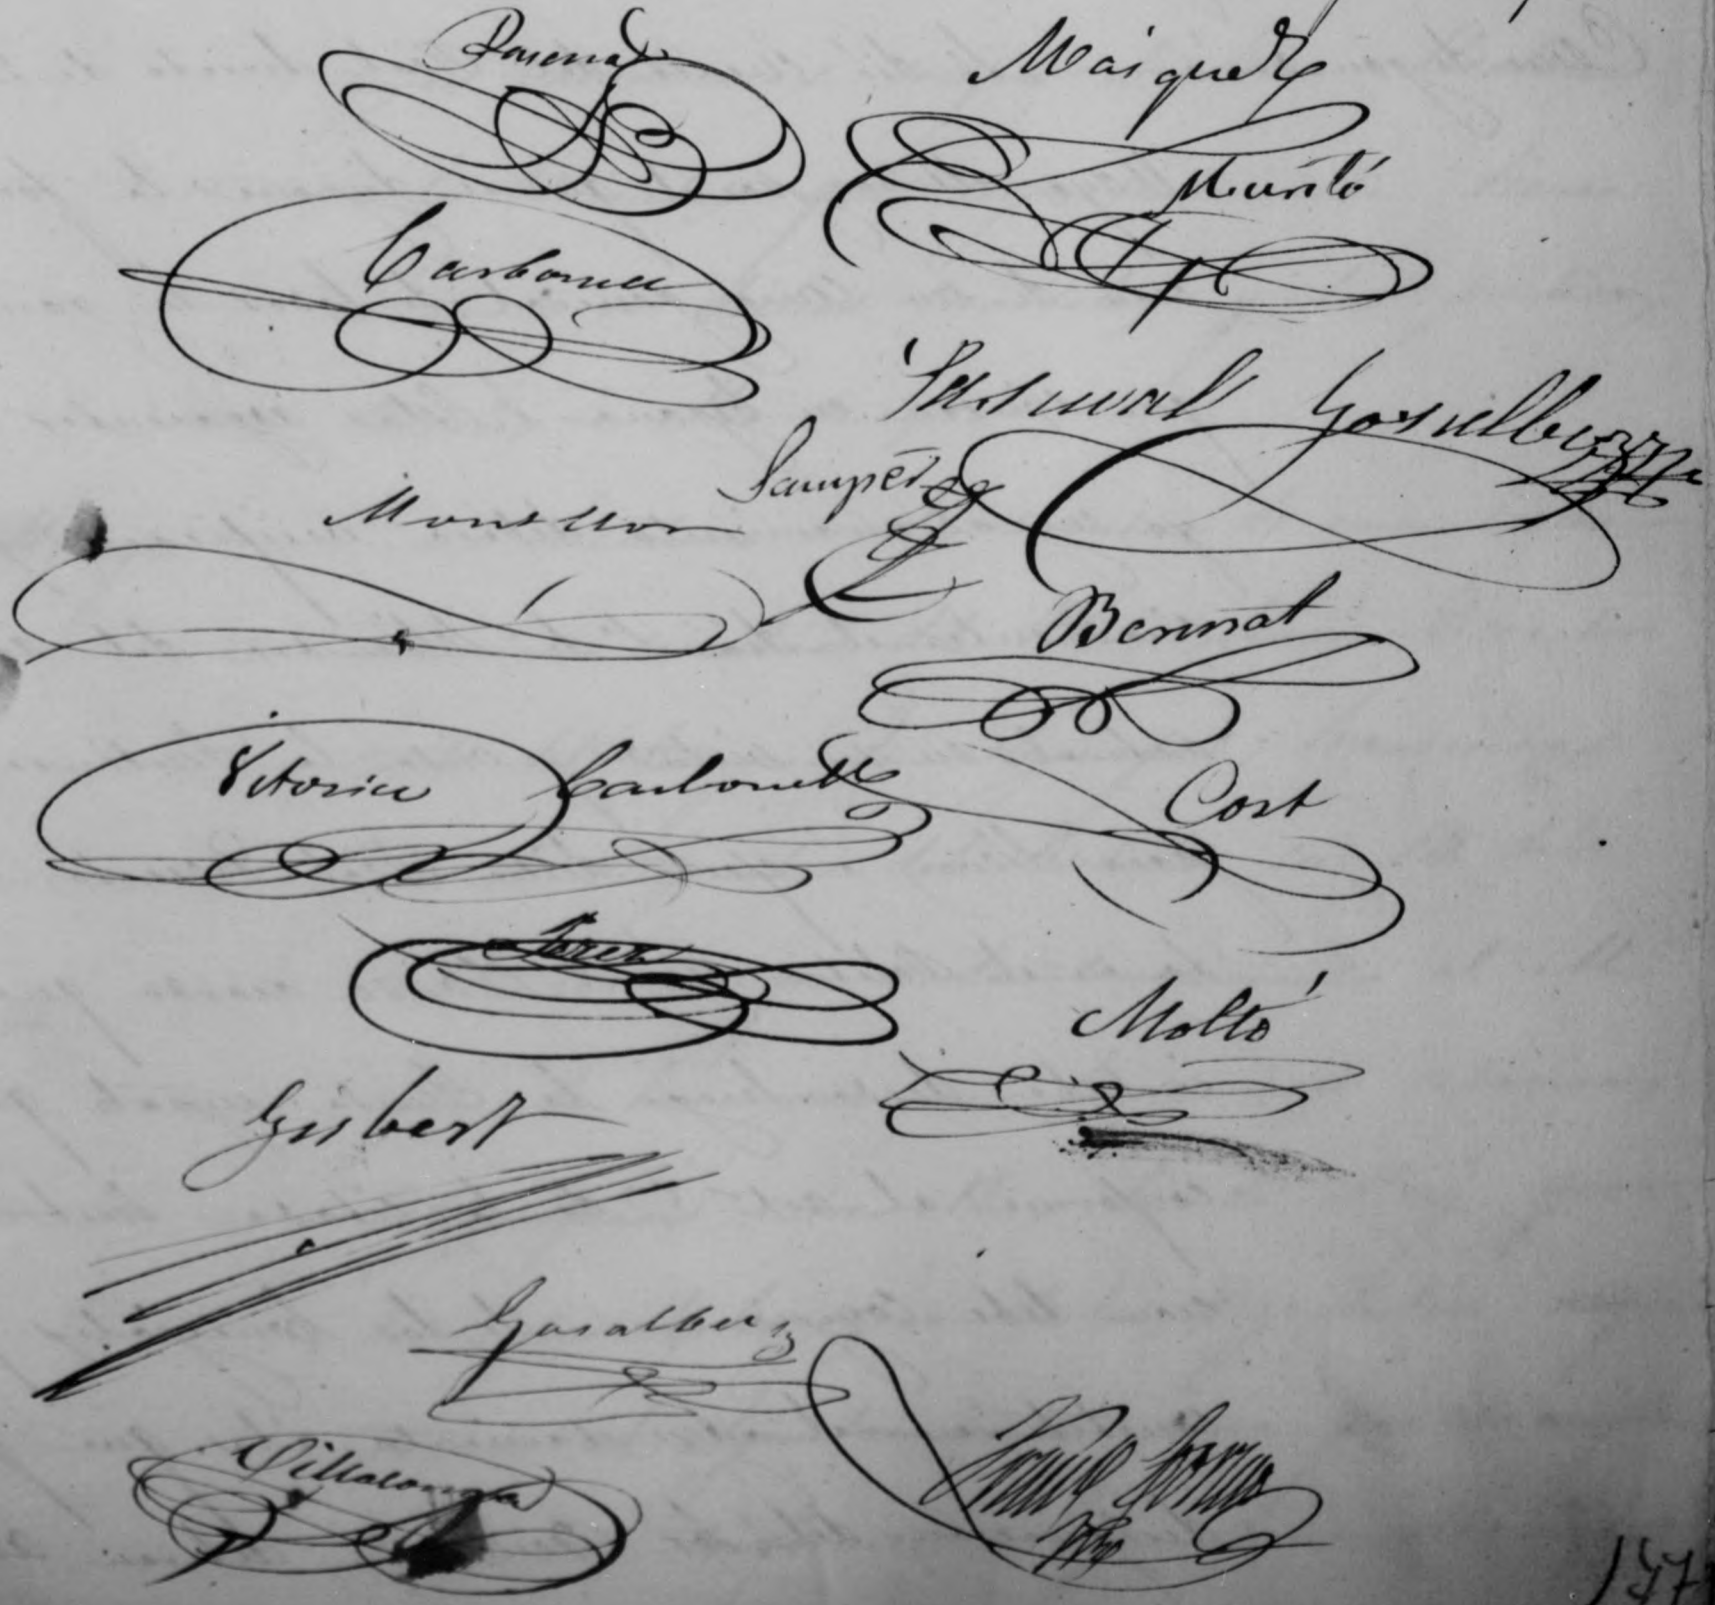 Maiquez
Muntó
Carbonell
Pascual Gosalbez
Samper
Monllor
Bernat
Vitoria Carbonell
Cort
Perez
Moltó
Gisbert
Gosalbez
Villalonga
147